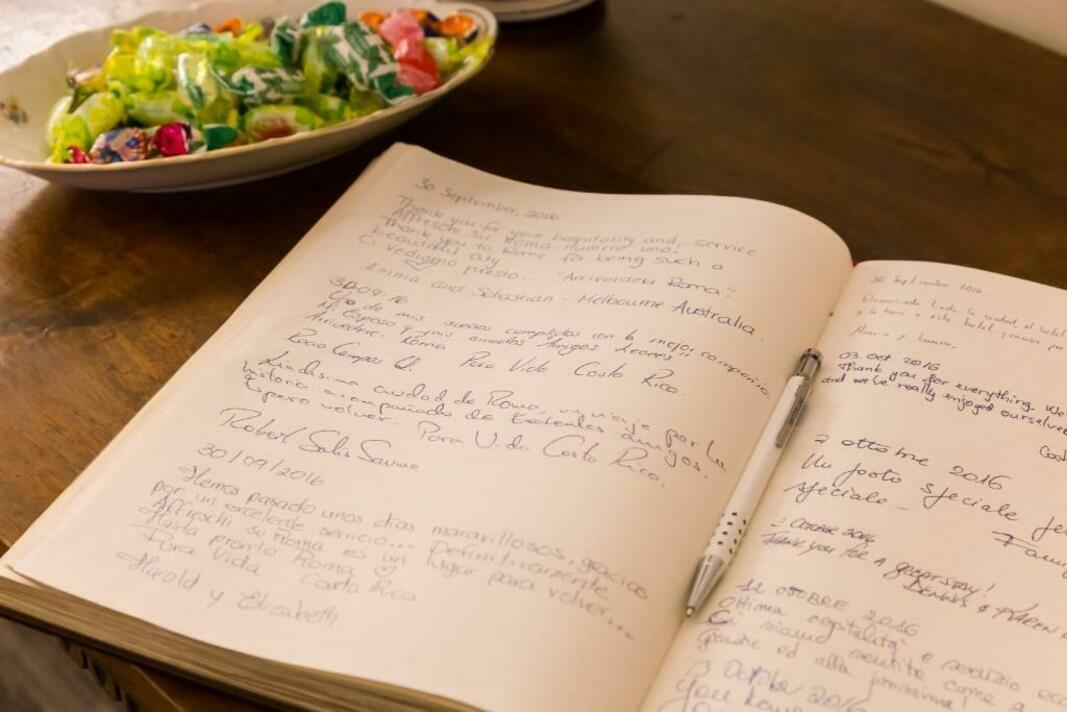 30 September, 2016
Thank you for your hospitality and, service
Affreschi su Roma - numero uno.
Thank you to Rome for being such a
beautiful city
Ci vediamo presto... "Arrivorderci Roma"
Emma and Sebastian - Melbourne Australia
30.09.16
de mis sueños cumplidos con la mejor compañía,
Mi Esposo y mis amigos Leones"
Arrivederci Roma Pura Vida Costa Rica.
Rocio Campos
Lindísima ciudad de Roma, viaje por la
historia acompañado de excelentes amigos.
Espero volver. Pura Vida Costa Rica.
Robert Solis
30/09/2016
Hemos pasado unos días maravillosos, gracias
por un excelente servicio... Definitivamente
Affreschi su Roma es un lugar para volver...
Hasta pronto Roma
Pura Vida Costa Rica
Harold y Elizabeth
30 Septiembre 2016
03 Oct 2016
Thank you for everything. We
and we've really enjoyed ourselves
7 ottobre 2016
Un posto speciale
speciale
October 2016
Thank you for a great stay!
Dennis & Karen
12 ottobre 2016
Ottima ospitalità e servizio
Ci siamo sentite come a
Grazie ed alla prossima!
3 October 2016
You have